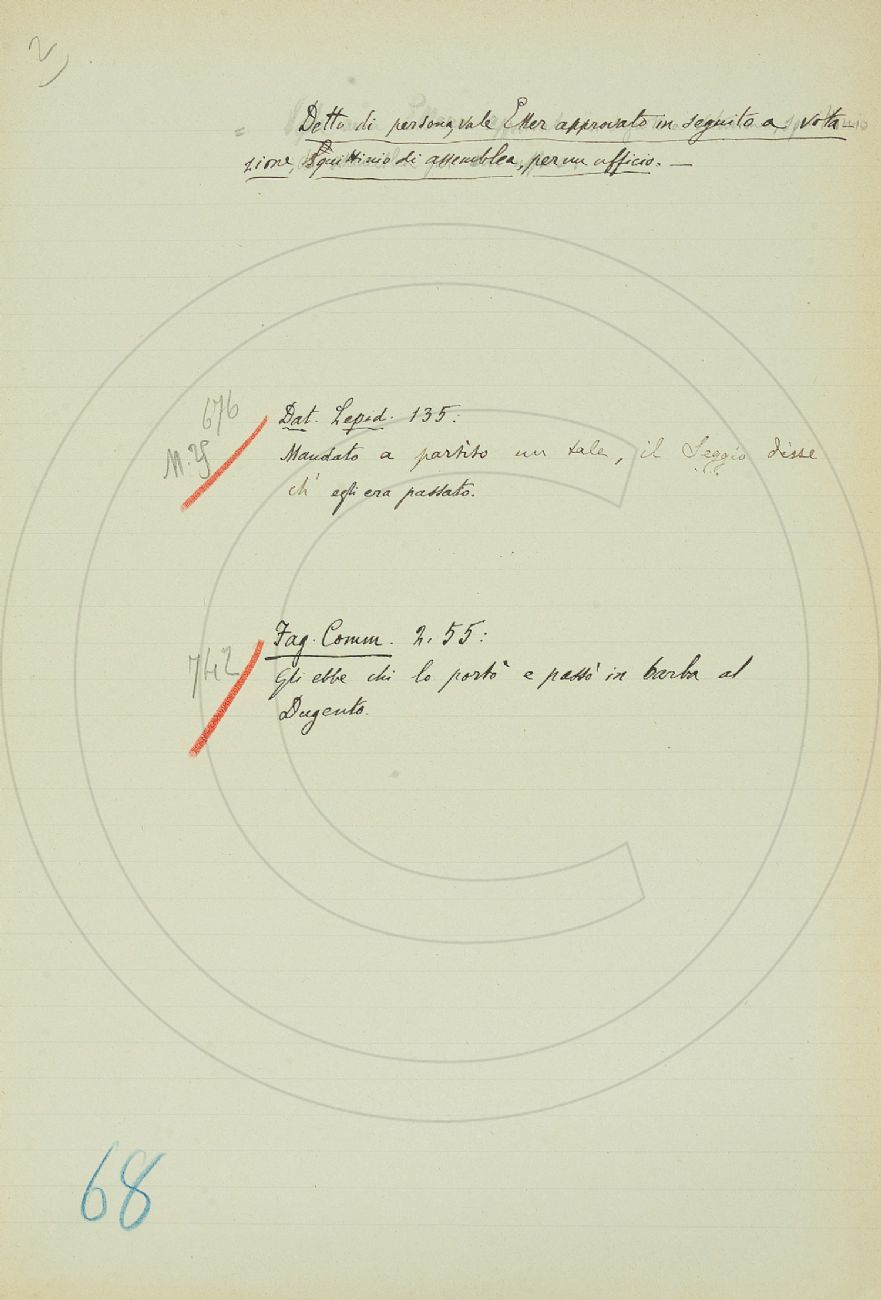 2)
= Detto di persona, vale Esser approvato in seguito a vota
zione, Squittinio di assemblea, per un ufficio. —
676
Dat. Lepid. 135:
M. 25
Mandato a partito un tale, il Seggio disse
ch' egli era passato.
Fag. Comm. 2. 55:
742
Gli ebbe chi lo portò e passò in barba al
Dugento.
68